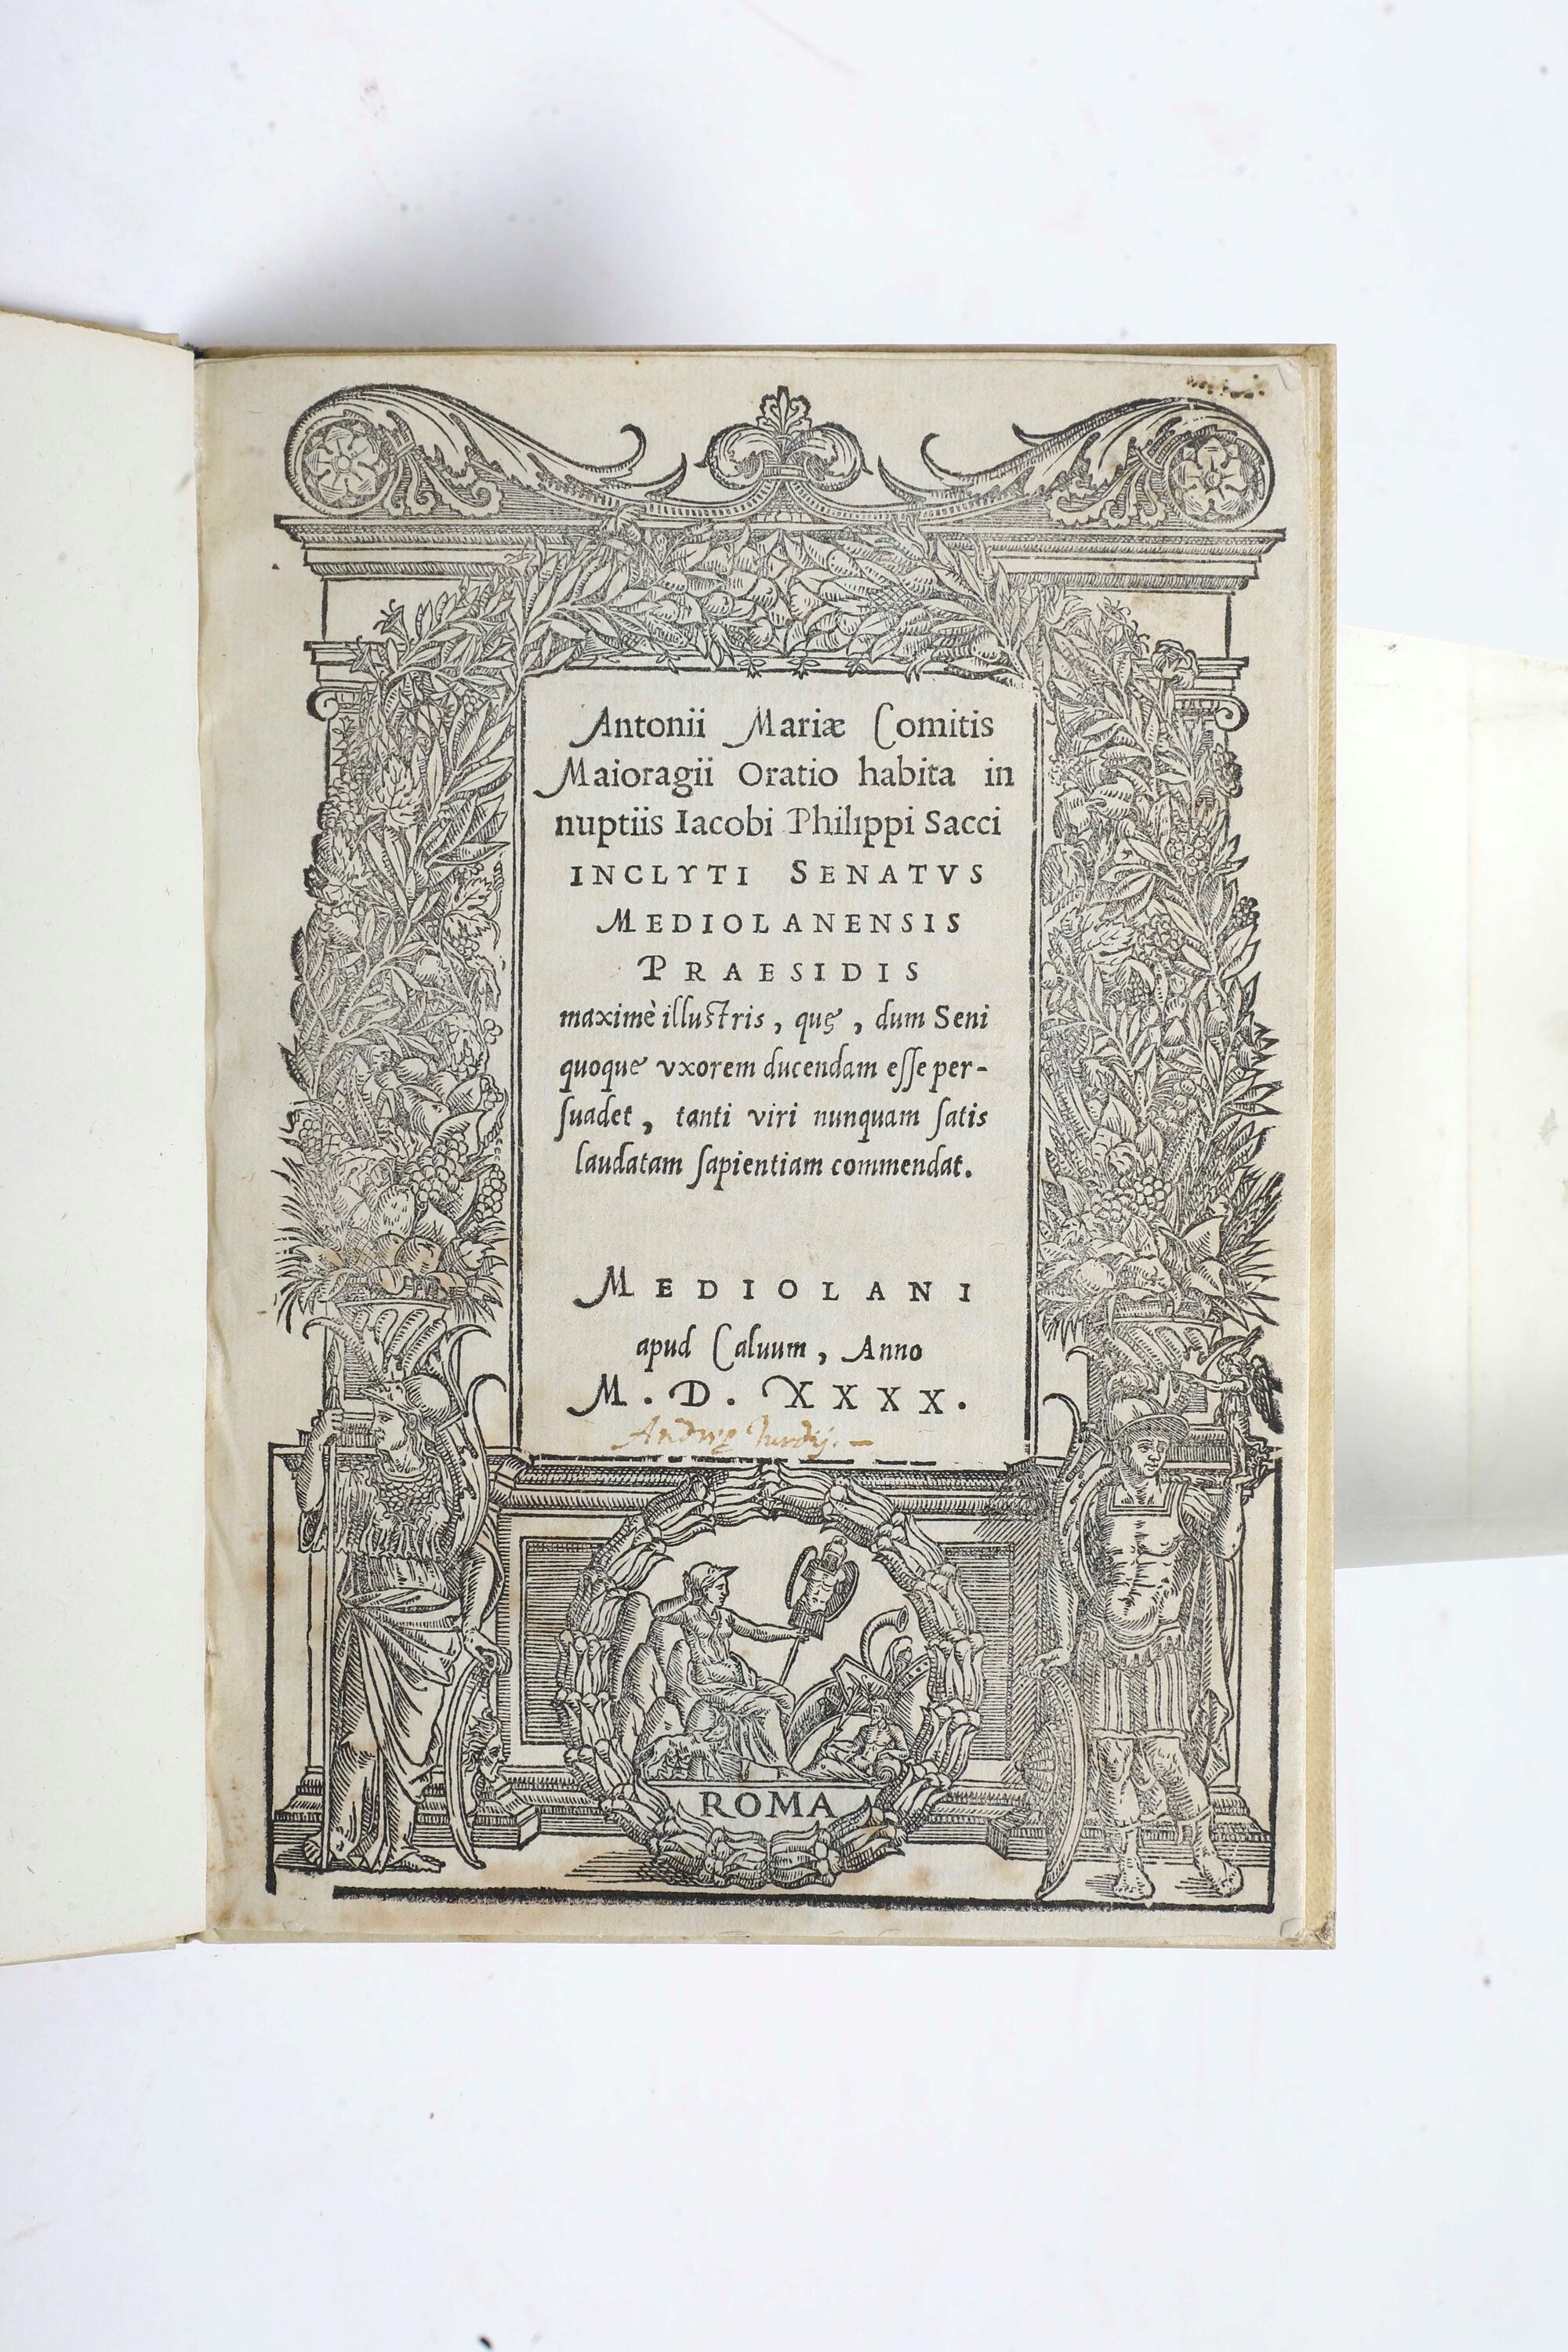 Antonii Mariæ Comitis
Maioragii Oratio habita in
nuptiis Iacobi Philippi Sacci
INCLYTI SENATVS
MEDIOLANENSIS
PRAESIDIS
maximè illustris, quę, dum Seni
quoque vxorem ducendam esse per-
suadet, tanti viri nunquam satis
laudatam sapientiam commendat.
MEDIOLANI
apud Caluum, Anno
M. D. XXXX.
ROMA